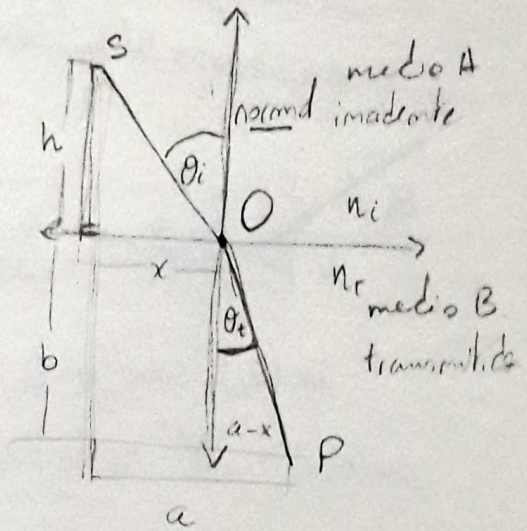 S
medio A
normal incidente
h
θi
O
ni
x
nr
medio B
θt
transmitida
b
a-x
P
a